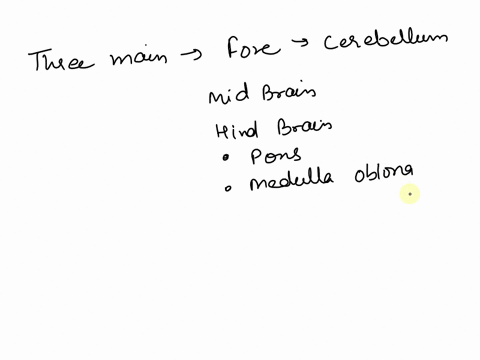 Three main → Fore → Cerebellum
Mid Brain
Hind Brain
• Pons
• Medulla oblona